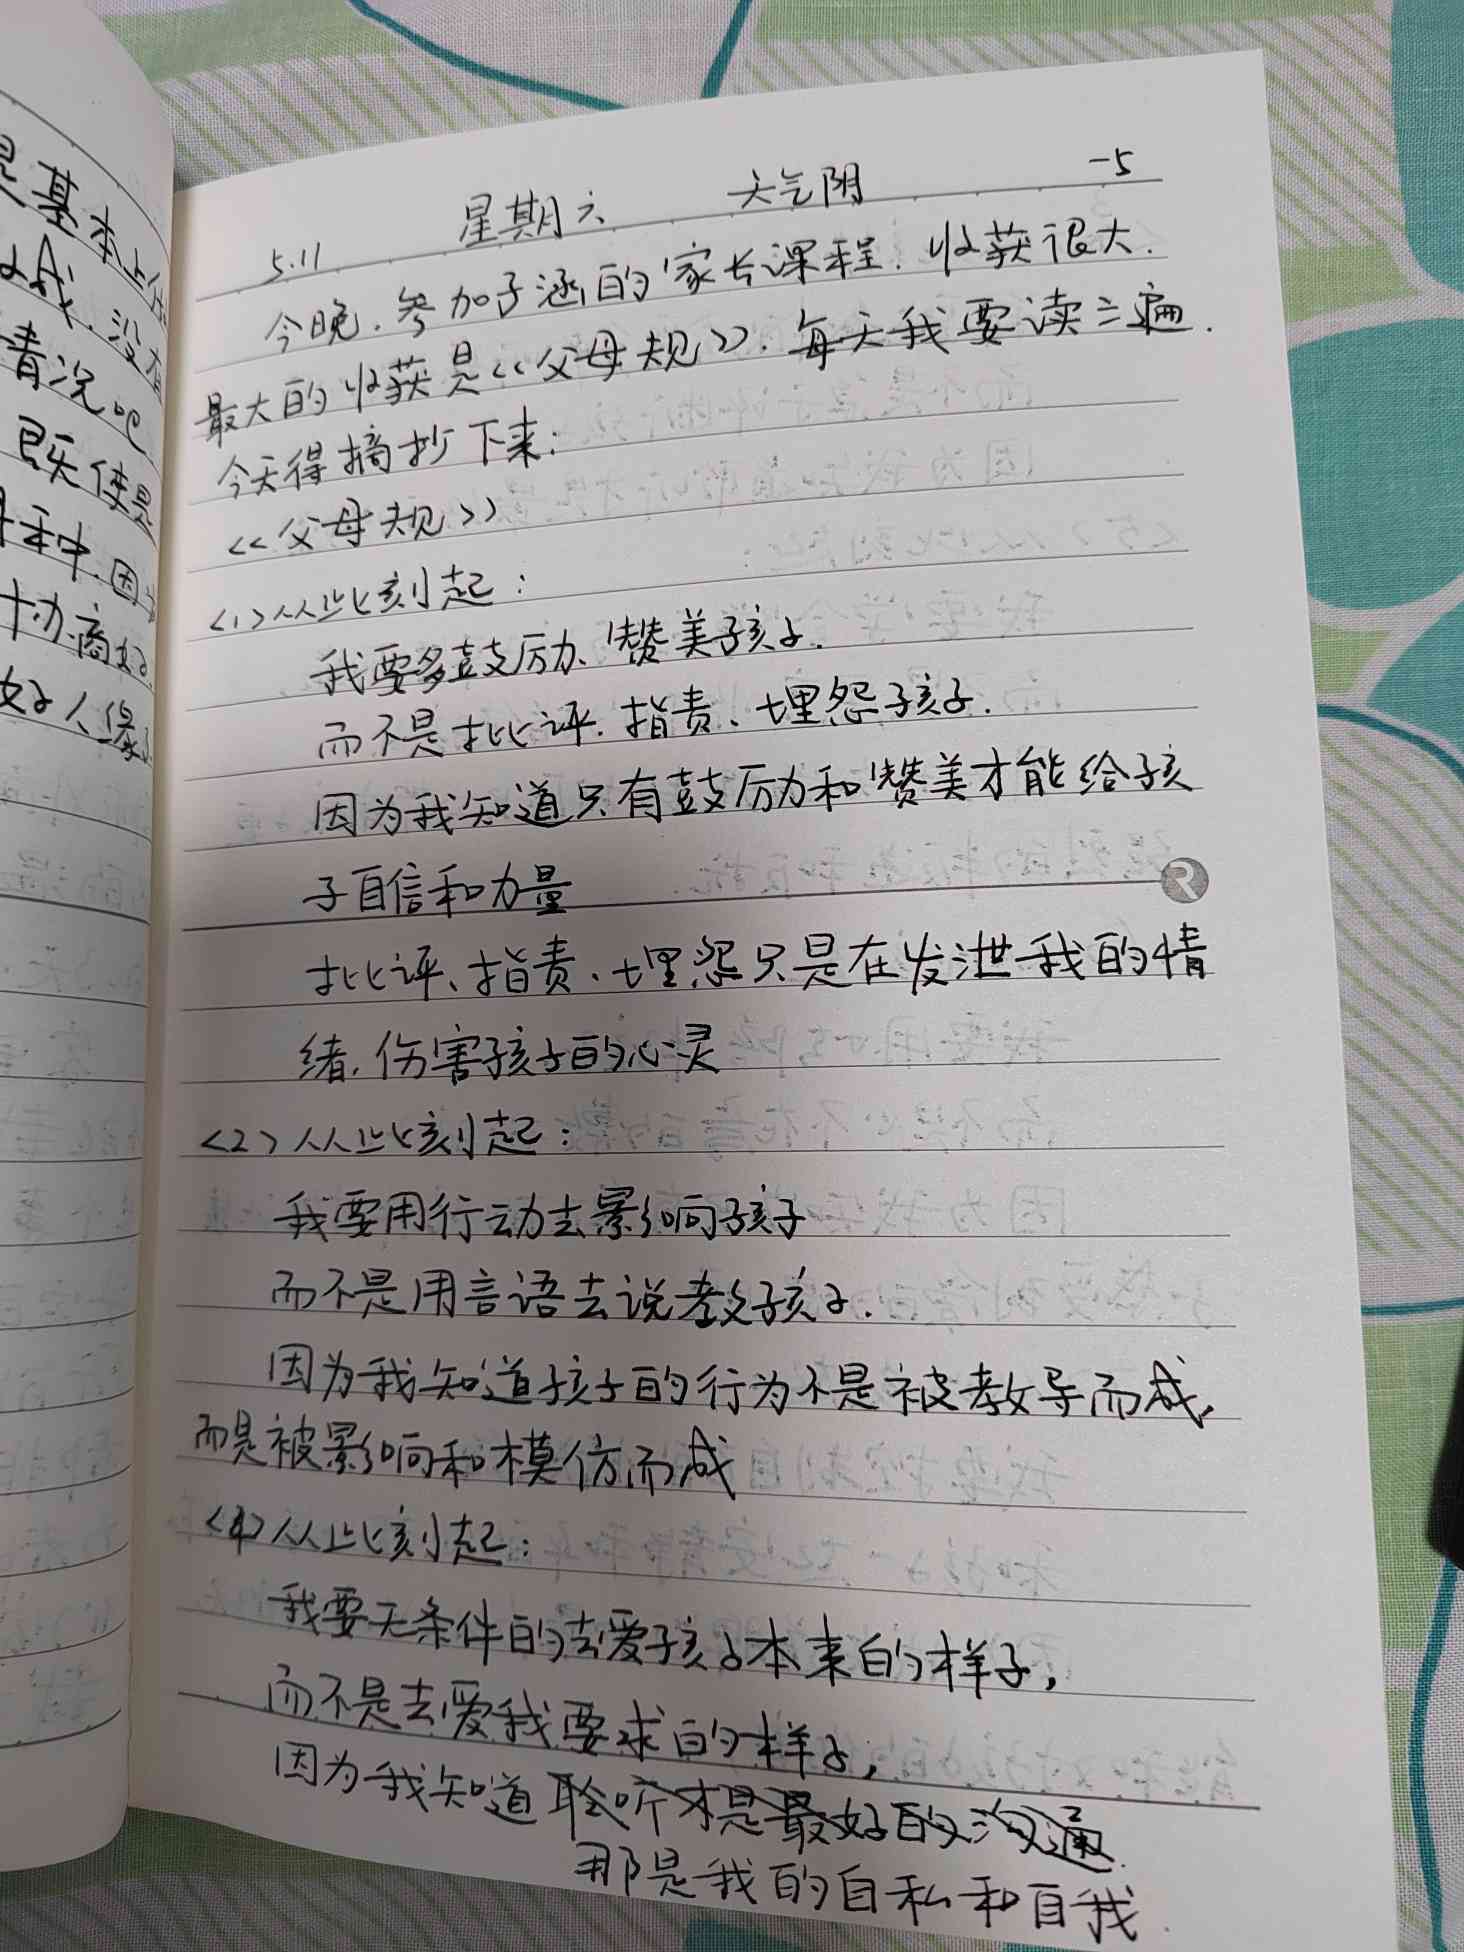 是基本上
成.没有
情况吧
既使是
种中.因为
协商好
好人缘
5.11 星期六 天气阴 -5
今晚.参加子涵的家长课程.收获很大.
最大的收获是《父母规》.每天我要读三遍.
今天得摘抄下来:
《父母规》
<1>从此刻起:
我要多鼓励、赞美孩子.
而不是批评.指责、埋怨孩子.
因为我知道只有鼓励和赞美才能给孩
子自信和力量
批评、指责、埋怨只是在发泄我的情
绪.伤害孩子的心灵
<2>从此刻起:
我要用行动去影响孩子
而不是用言语去说教孩子.
因为我知道孩子的行为不是被教导而成,
而是被影响和模仿而成
<4>从此刻起:
我要无条件的去爱孩子本来的样子,
而不是去爱我要求的样子,
因为我知道聆听才是最好的沟通.
那是我的自私和自我.